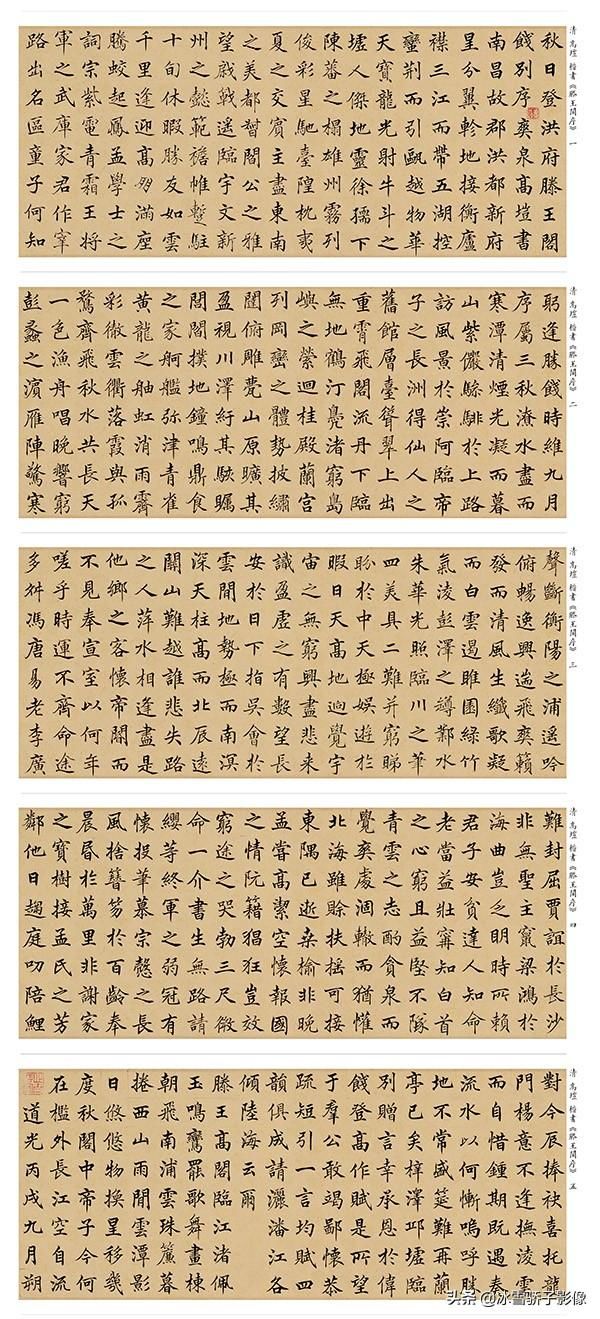 清 高塏 楷書《滕王閣序》 一
秋日登洪府滕王閣
餞別序 奕泉高塏書
南昌故郡洪都新府
星分翼軫地接衡廬
襟三江而帶五湖控
蠻荊而引甌越物華
天寶龍光射牛斗之
墟人傑地靈徐孺下
陳蕃之榻雄州霧列
俊彩星馳臺隍枕夷
夏之交賓主盡東南
之美都督閻公之雅
望棨戟遥臨宇文新
州之懿範襜帷蹔駐
十旬休暇勝友如雲
千里逢迎高朋滿座
騰蛟起鳳孟學士之
詞宗紫電青霜王將
軍之武庫家君作宰
路出名區童子何知
清 高塏 楷書《滕王閣序》 二
躬逢勝餞時維九月
序屬三秋潦水盡而
寒潭清煙光凝而暮
山紫儼驂騑於上路
訪風景於崇阿臨帝
子之長洲得仙人之
舊館層臺聳翠上出
重霄飛閣流丹下臨
無地鶴汀鳧渚窮島
嶼之縈迴桂殿蘭宮
列岡巒之體勢披繡
闥俯雕甍山原曠其
盈視川澤紆其駭矚
閭閻撲地鐘鳴鼎食
之家舸艦弥津青雀
黃龍之舳虹消雨霽
彩徹雲衢落霞與孤
鶩齊飛秋水共長天
一色漁舟唱晚響窮
彭蠡之濱雁陣驚寒
清 高塏 楷書《滕王閣序》 三
聲斷衡陽之浦遥吟
俯暢逸興遄飛爽籟
發而清風生纖歌凝
而白雲遏睢園綠竹
氣淩彭澤之罇鄴水
朱華光照臨川之筆
四美具二難并窮睇
眄於中天極娛遊於
暇日天高地迥覺宇
宙之無窮興盡悲來
識盈虛之有數望長
安於日下指吳會於
雲間地勢極而南溟
深天柱高而北辰遠
關山難越誰悲失路
之人萍水相逢盡是
他鄉之客懷帝閽而
不見奉宣室以何年
嗟乎時運不齊命途
多舛馮唐易老李廣
清 高塏 楷書《滕王閣序》 四
難封屈賈誼於長沙
非無聖主竄梁鴻於
海曲豈乏明時所賴
君子安貧達人知命
老當益壯甯知白首
之心窮且益堅不隊
青雲之志酌貪泉而
覺爽處涸轍而猶懽
北海雖賒扶搖可接
東隅已逝桑榆非晚
孟嘗高潔空懷報國
之情阮籍猖狂豈效
窮途之哭勃三尺微
命一介書生無路請
纓等終軍之弱冠有
懷投筆慕宗愨之長
風捨簪笏於百齡奉
晨昏於萬里非謝家
之寶樹接孟氏之芳
鄰他日趨庭叨陪鯉
清 高塏 楷書《滕王閣序》 五
對今辰捧袂喜托龍
門楊意不逢撫淩雲
而自惜鍾期既遇奏
流水以何慚嗚呼勝
地不常盛筵難再蘭
亭已矣梓澤邱墟臨
別贈言幸承恩於偉
餞登高作賦是所望
于羣公敢竭鄙懷恭
疏短引一言均賦四
韻俱成請灑潘江各
傾陸海云爾
滕王高閣臨江渚佩
玉鳴鸞罷歌舞畫棟
朝飛南浦雲珠簾暮
捲西山雨閒雲潭影
日悠悠物換星移幾
度秋閣中帝子今何
在檻外長江空自流
道光丙戌九月朔
头条 @冰雪骄子影像